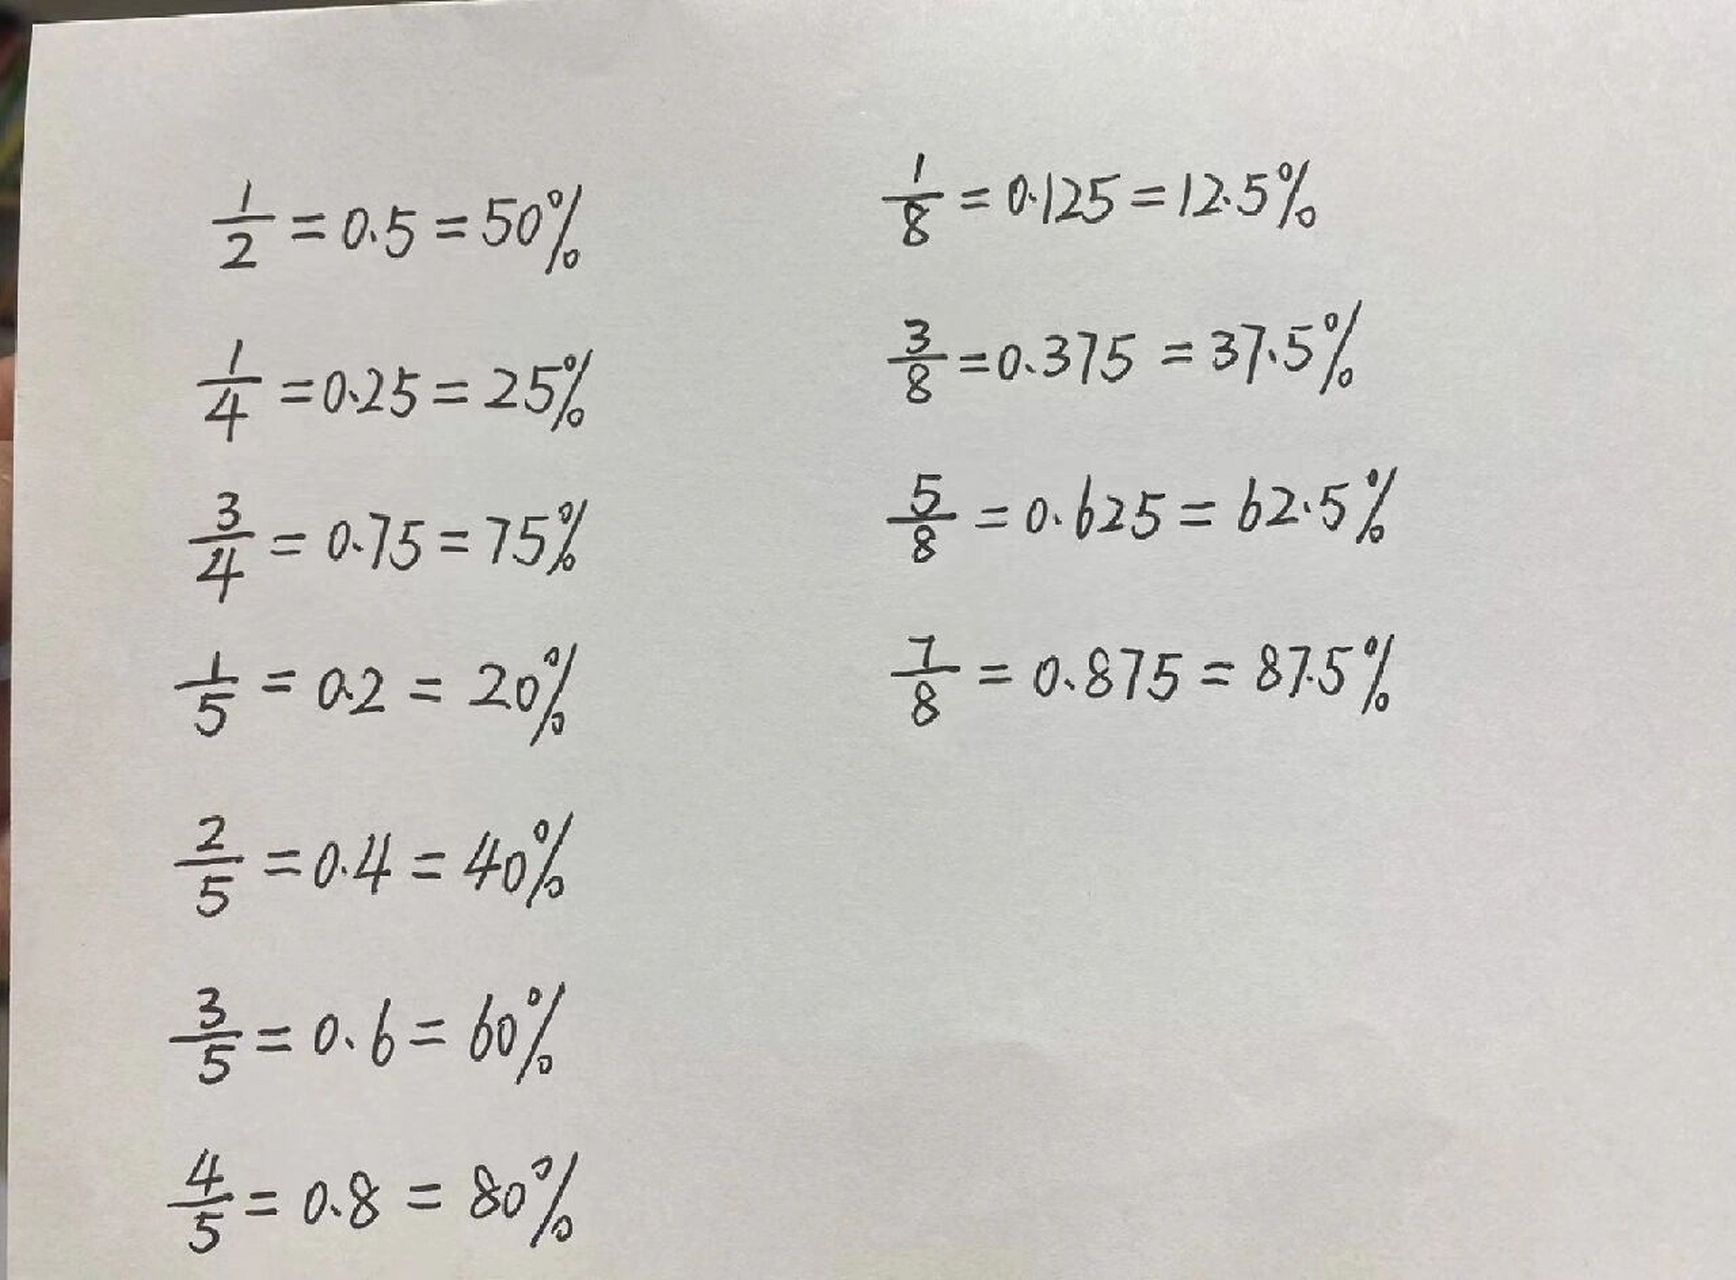 1/2 = 0.5 = 50%
1/4 = 0.25 = 25%
3/4 = 0.75 = 75%
1/5 = 0.2 = 20%
2/5 = 0.4 = 40%
3/5 = 0.6 = 60%
4/5 = 0.8 = 80%
1/8 = 0.125 = 12.5%
3/8 = 0.375 = 37.5%
5/8 = 0.625 = 62.5%
7/8 = 0.875 = 87.5%